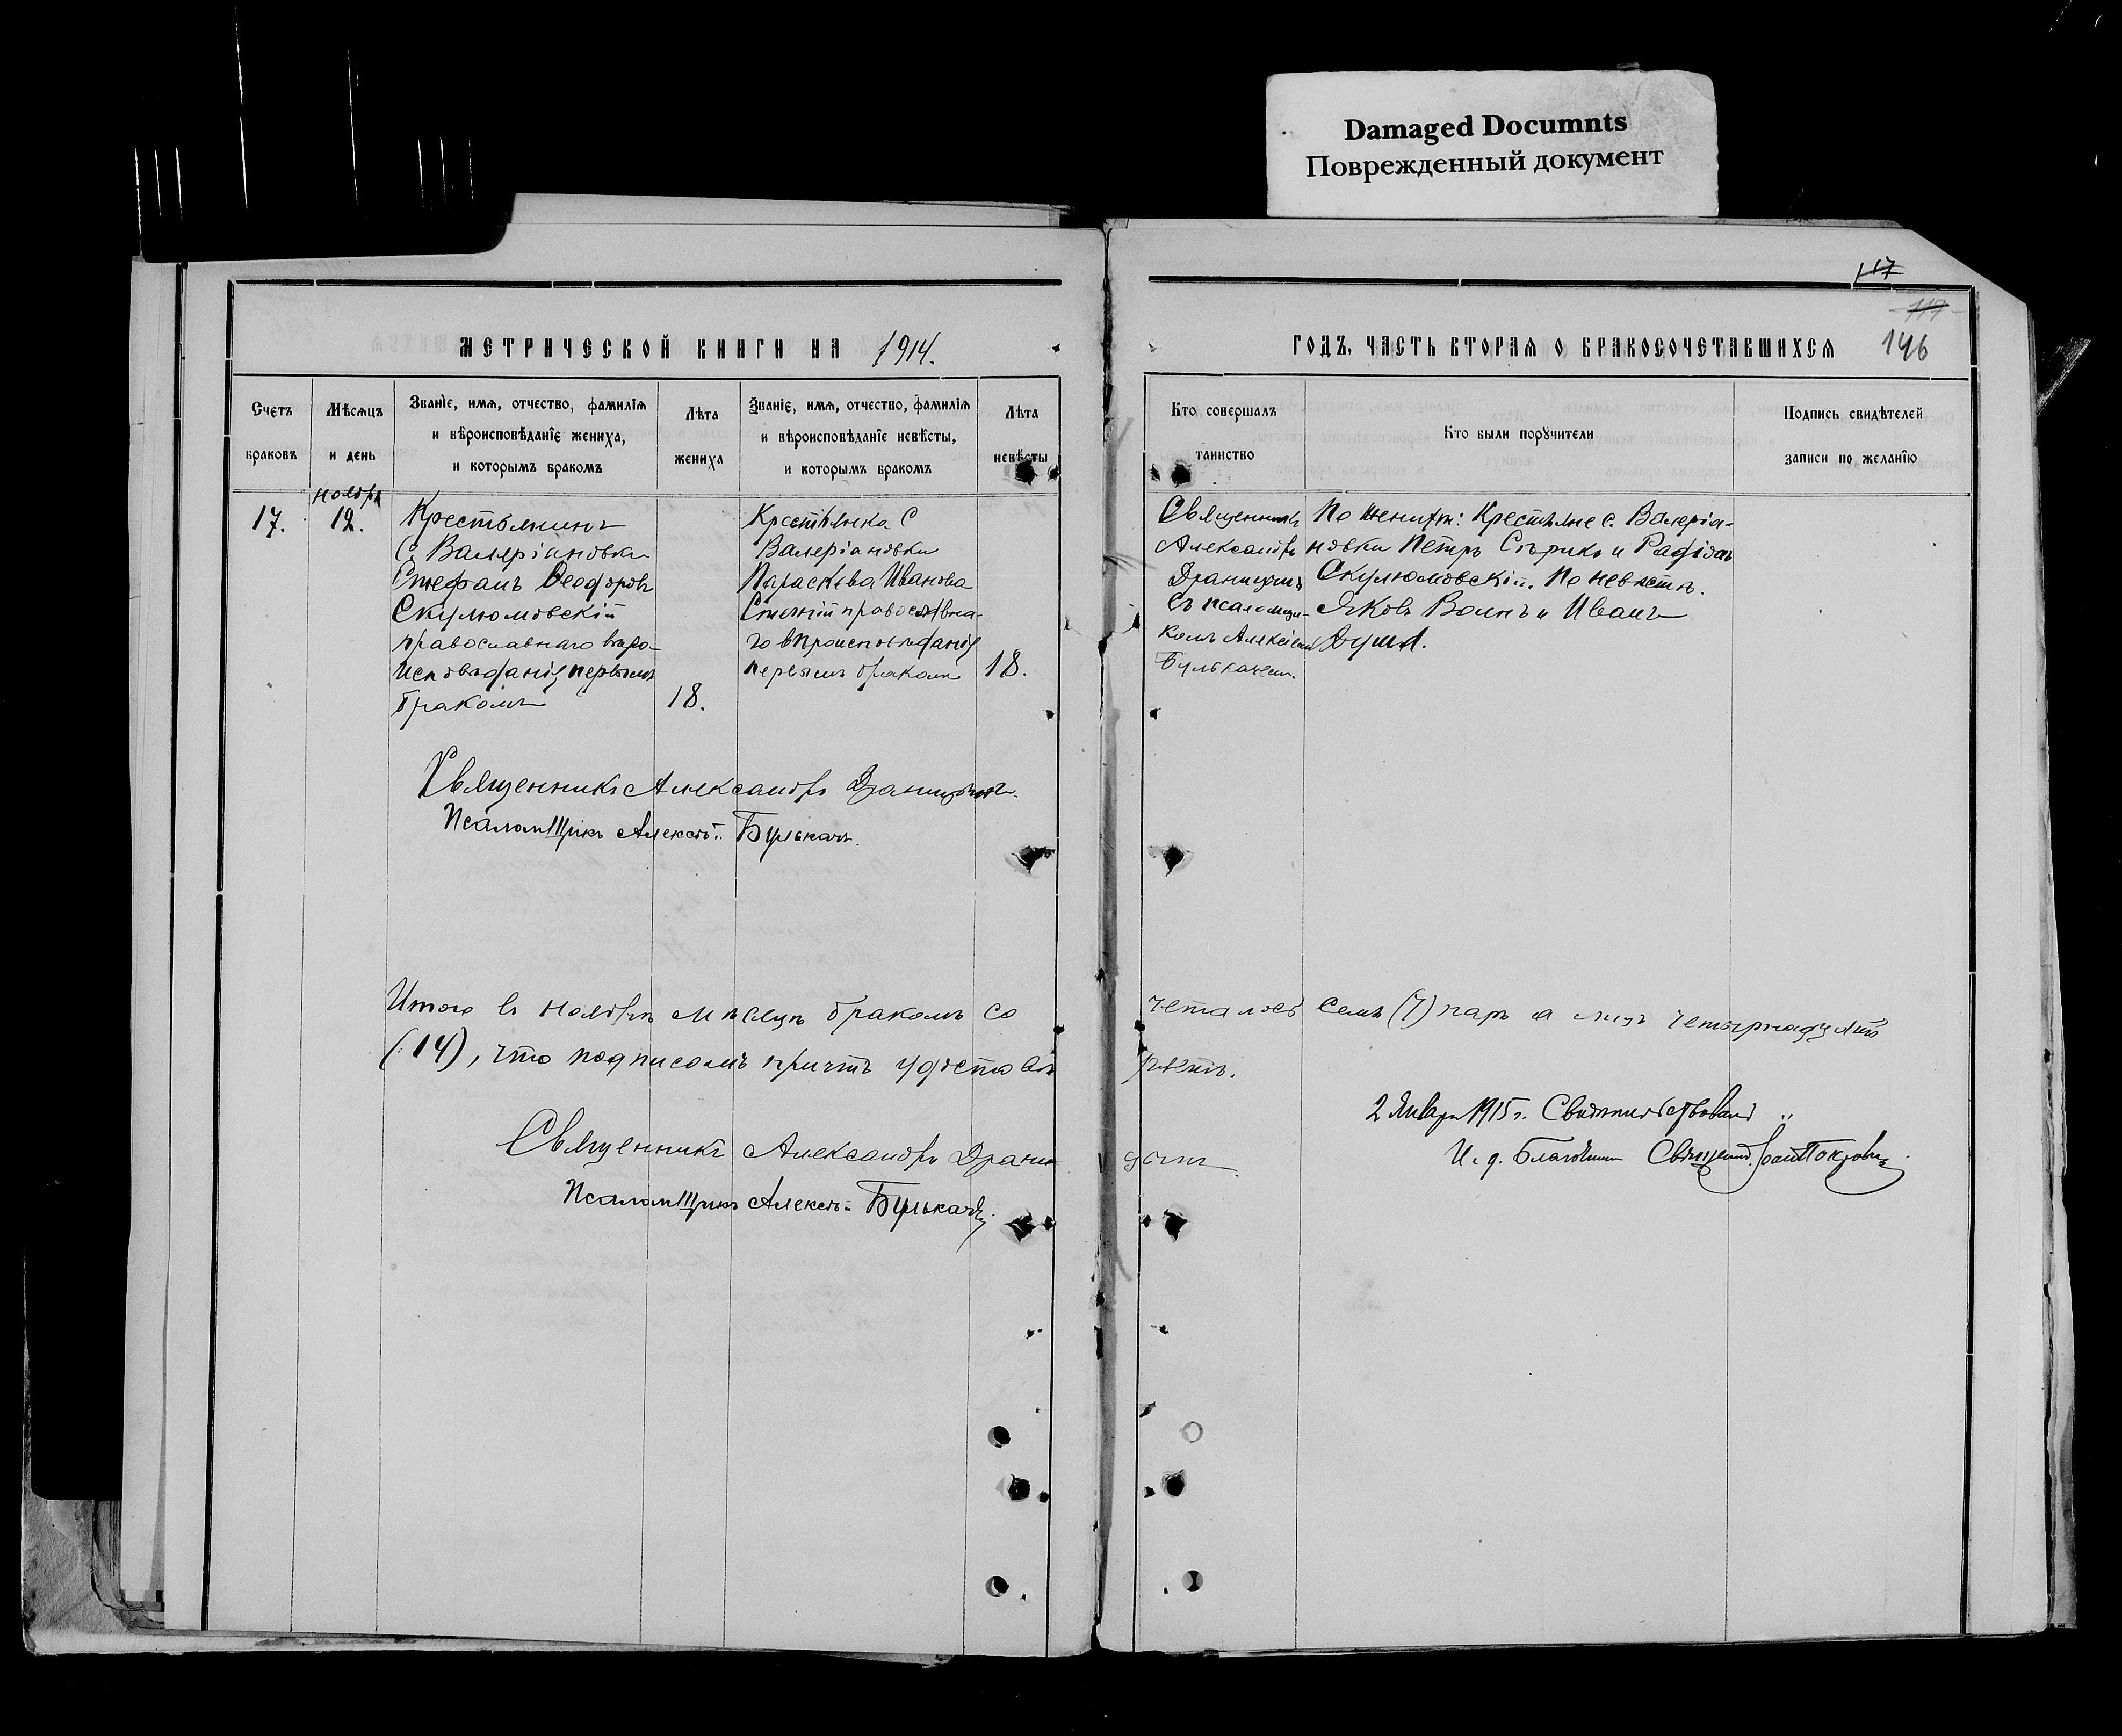 Damaged Documnts
Поврежденный документ
117
117
МЕТРИЧЕСКОЙ КНИГИ НА 1914.
ГОДЪ, ЧАСТЬ ВТОРАЯ О БРАКОСОЧЕТАВШИХСЯ
146
Счетъ браковъ
Мѣсяцъ и день
Званїе, имя, отчество, фамилїя и вѣроисповѣданїе жениха, и которымъ бракомъ
Лѣта жениха
Званїе, имя, отчество, фамилїя и вѣроисповѣданїе невѣсты, и которымъ бракомъ
Лѣта невѣсты
Кто совершалъ таинство
Кто были порꙋчители
Подпись свидѣтелей записи по желанїю
Ноября
17.
12.
Крестьянинъ
с. Валеріановка
Стефанъ Ѳеодоровъ
Скулюмовскій
православнаго вѣро-
исповѣданія, первымъ
бракомъ
18.
Крестьянка с
Валеріановки
Параскева Иванова
православна-
го вѣроисповѣданія
первымъ бракомъ
18.
Священникъ
Александръ
съ псаломщи-
комъ Алексіемъ
Булькачемъ.
По женихѣ: Крестьяне с. Валеріа-
новки Петръ Сѣрикъ и
Скулюмовскій. По невѣстѣ.
Яковъ Воинъ и Иванъ
Священникъ Александръ
Псаломщикъ Алексѣй Булькачъ.
Итого въ Ноябрѣ мѣсяцѣ бракомъ со
четалось семь (7) паръ а лицъ четырнадцать
(14), что подписомъ причтъ удостовѣ
ряетъ.
Священникъ Александръ
Псаломщикъ Алексѣй Булькачъ.
2 Января 1915 г. Свидѣтельствовалъ
И. д. Благочин. Священ. Іоан. Покров